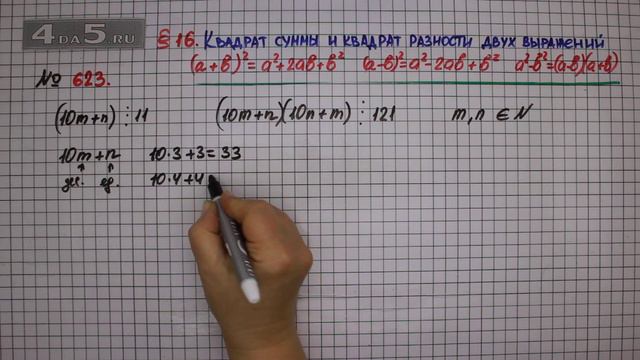 4DA5.RU
§ 16. Квадрат суммы и квадрат разности двух выражений
(a+b)²=a²+2ab+b² (a-b)²=a²-2ab+b² a²-b²=(a-b)(a+b)
№ 623.
(10m+n)⋮11 (10m+n)(10n+m)⋮121 m,n ∈ N
10m+n 10·3+3=33
↑ ↑
дес. ед. 10·4+4